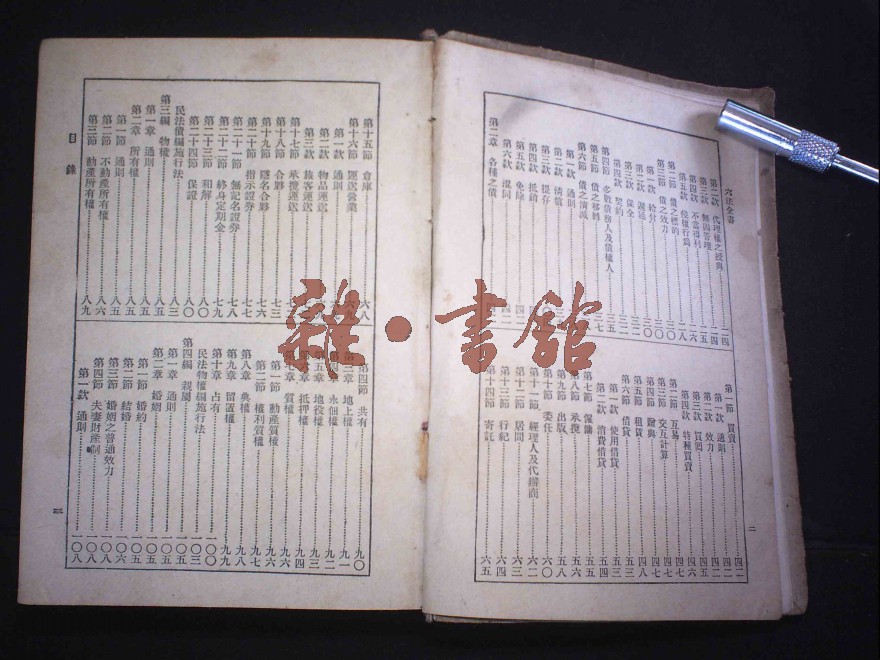 六法全書
第二款 代理權之授與 二四
第三款 無因管理 二五
第四款 不當得利 二六
第五款 侵權行爲 二八
第二節 債之標的 三〇
第三節 債之效力 三〇
第一款 給付
第二款 遲延
第三款 保全
第四款 契約
第四節 多數債務人及債權人
第五節 債之移轉
第六節 債之消滅
第一款 通則
第二款 清償
第三款 提存
第四款 抵銷
第五款 免除
第六款 混同
第二章 各種之債
第一節 買賣 四二
第一款 通則 四二
第二款 效力
第三款 買回
第四款 特種買賣
第二節 互易 四七
第三節 交互計算 四七
第四節 贈與 四八
第五節 租賃 四八
第六節 借貸 五三
第一款 使用借貸 五三
第二款 消費借貸 五四
第七節 僱傭 五五
第八節 承攬 五五
第九節 出版 五八
第十節 委任 六〇
第十一節 經理人及代辦商 六二
第十二節 居間 六三
第十三節 行紀 六四
第十四節 寄託 六五
二
第十五節 倉庫 六八
第十六節 運送營業
第一款 通則
第二款 物品運送
第三款 旅客運送
第十七節 承攬運送
第十八節 合夥 七三
第十九節 隱名合夥 七六
第二十節 指示證券 七七
第二十一節 無記名證券 七八
第二十二節 終身定期金 七九
第二十三節 和解 八〇
第二十四節 保證 八〇
民法債編施行法 八三
第三編 物權 八五
第一章 通則 八五
第二章 所有權 八五
第一節 通則 八五
第二節 不動產所有權 八六
第三節 動產所有權 八九
目錄
第四節 共有 九〇
第三章 地上權 九一
第四章 永佃權 九二
第五章 地役權 九三
第六章 抵押權 九四
第七章 質權 九六
第一節 動產質權 九六
第二節 權利質權 九七
第八章 典權
第九章 留置權 九九
第十章 占有 一〇〇
民法物權編施行法 一〇三
第四編 親屬 一〇五
第一章 通則 一〇五
第二章 婚姻 一〇五
第一節 婚約 一〇五
第二節 結婚 一〇六
第三節 婚姻之普通效力 一〇八
第四節 夫妻財產制 一〇八
第一款 通則 一〇八
三
雜·書館